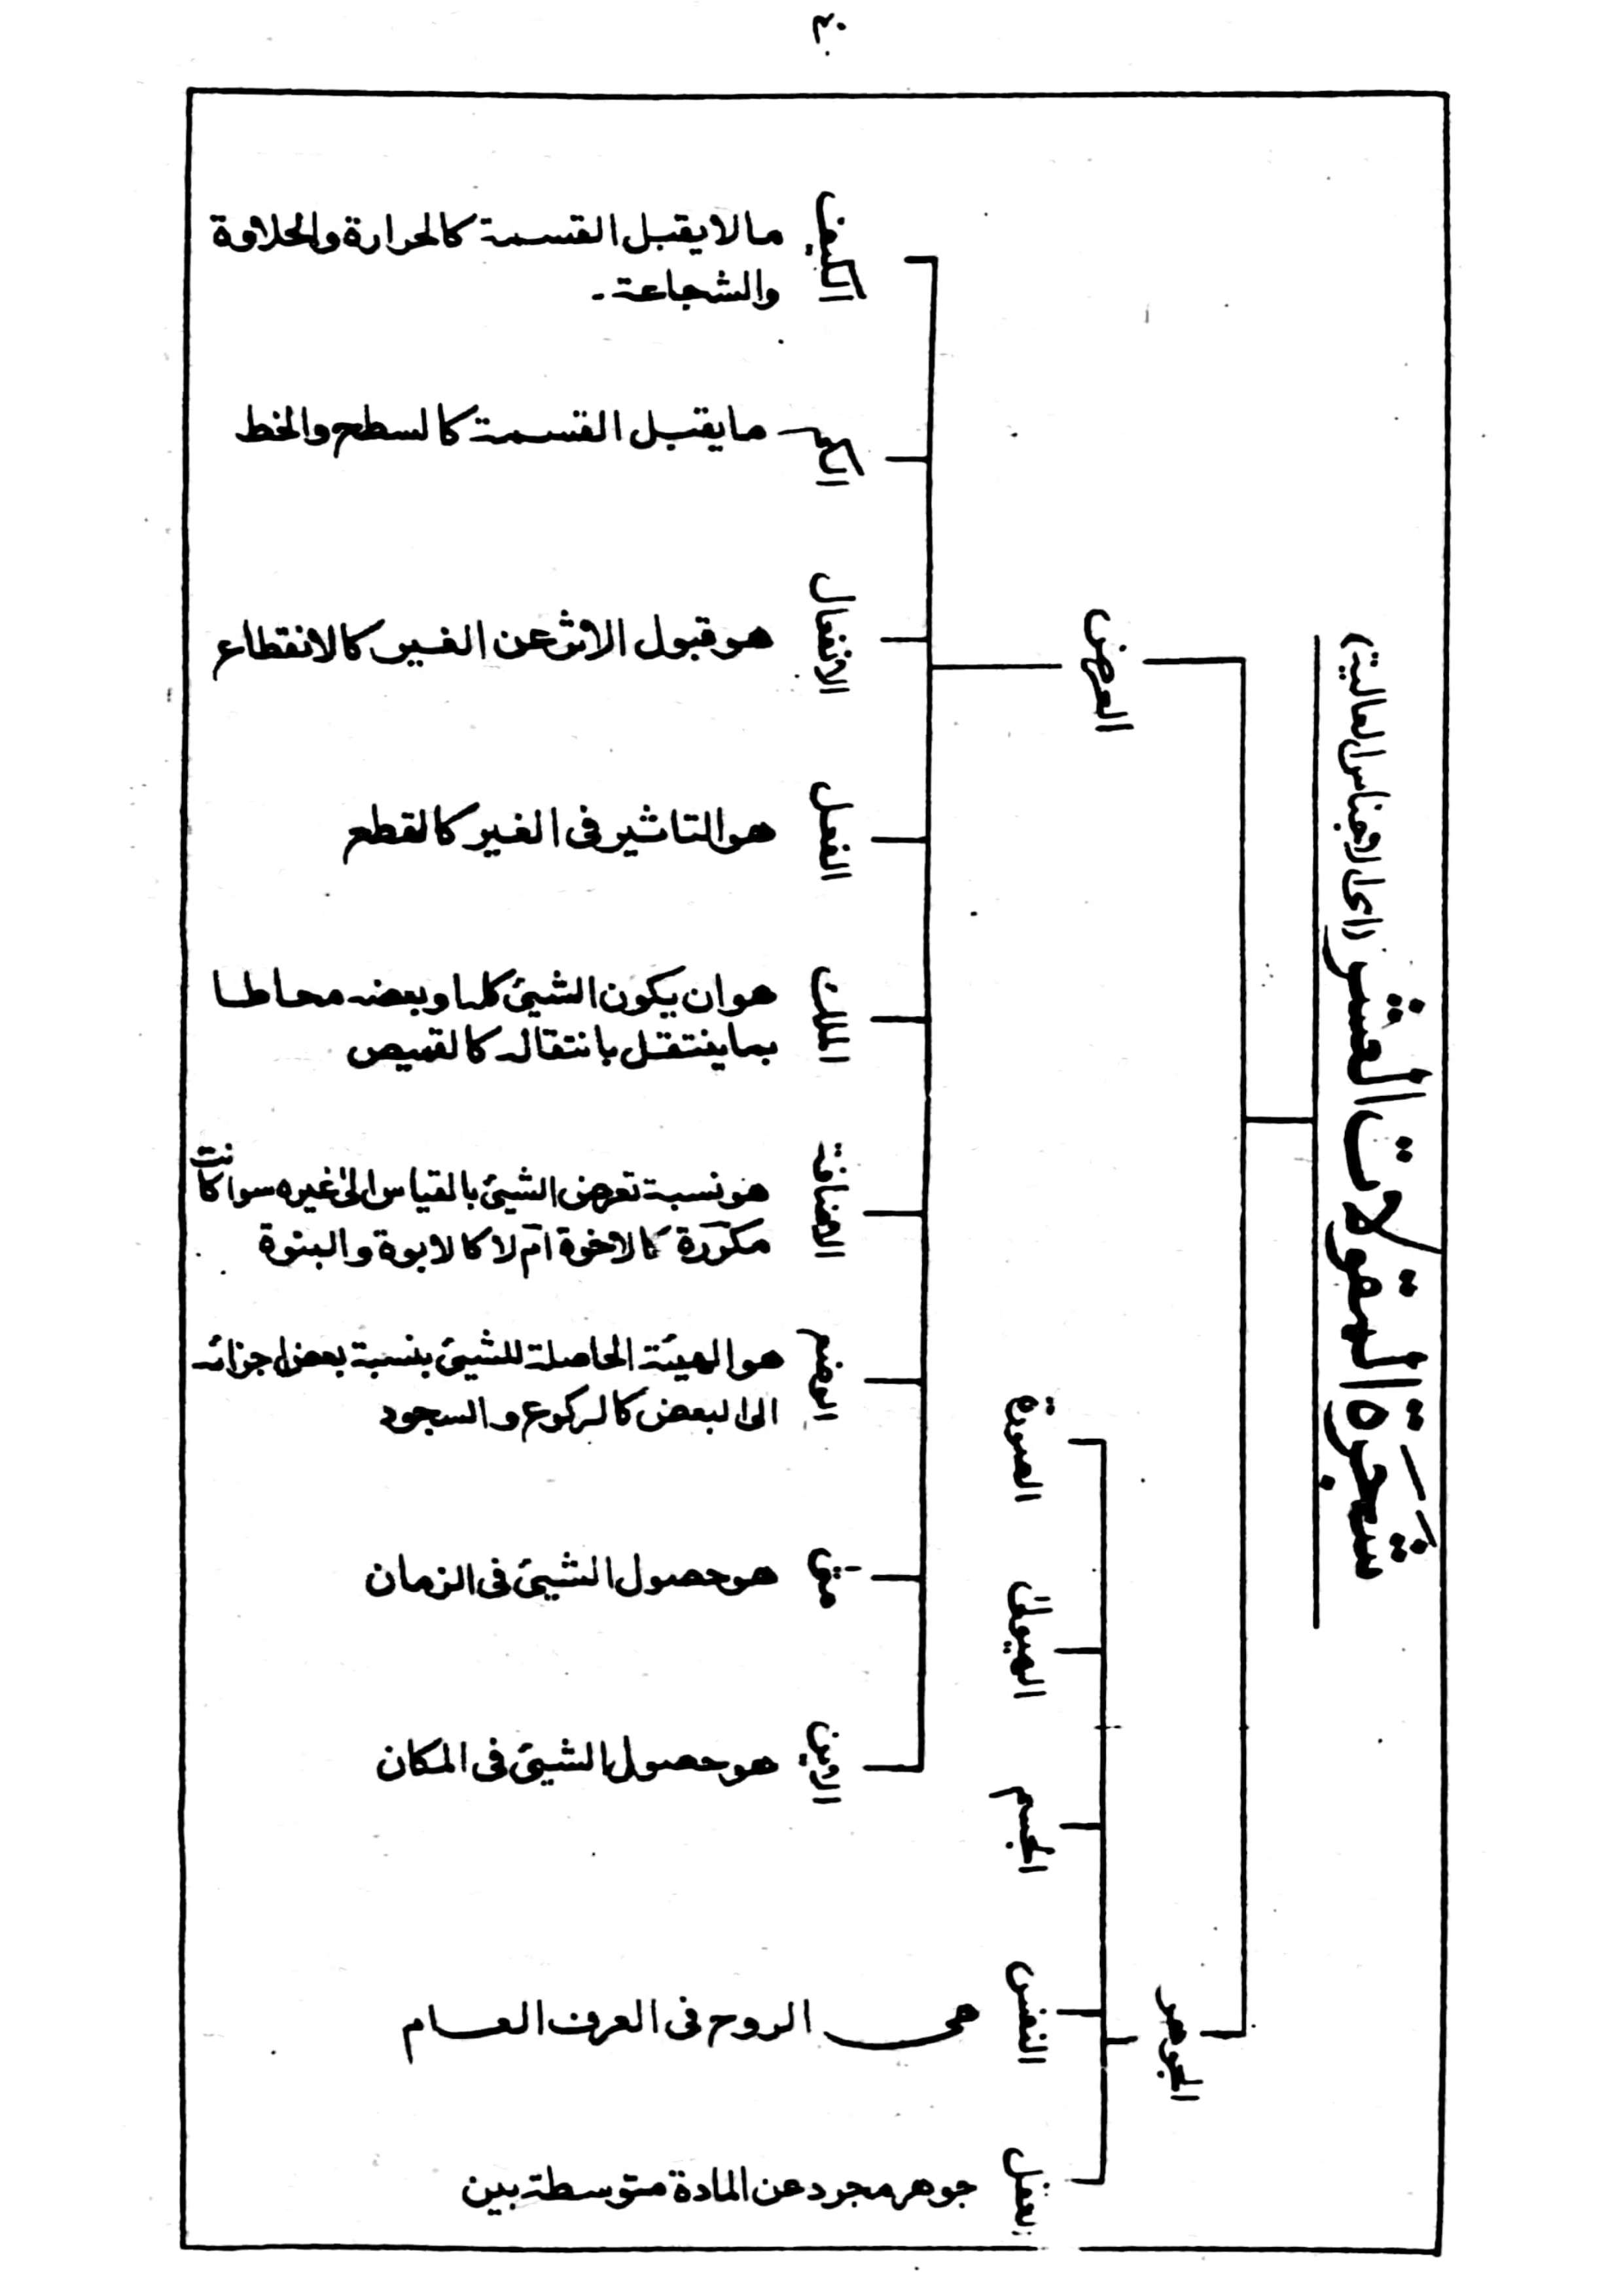 شجرة المقولات العشر (اعلى الاجناس العالية)
العرض
الجوهر
الكيف
ما لا يقبل القسمة كالحرارة والحلاوة
والشجاعة -
الكم
ما يقبل القسمة كالسطح والخط
الانفعال
هو قبول الاثر عن الغير كالانقطاع
الفعل
هو التاثير فى الغير كالقطع
الملك
هو ان يكون الشيئ كلها وبعضه محاطا
بما ينتقل بانتقاله كالقميص
الاضافة
هو نسبة تعرض الشيئ بالقياس الى غيره سوا كانت
مكررة كالاخوة ام لا كالابوة والبنوة
الوضع
هو الهيئة الحاصلة للشيئ بنسبة بعض اجزائه
الى البعض كالركوع والسجود
متى
هو حصول الشيئ فى الزمان
الاين
هو حصول الشيئ فى المكان
الصورة
الهيولى
الجسم
النفس
هى الروح فى العرف العام
العقل
جوهر مجرد عن المادة متوسطة بين